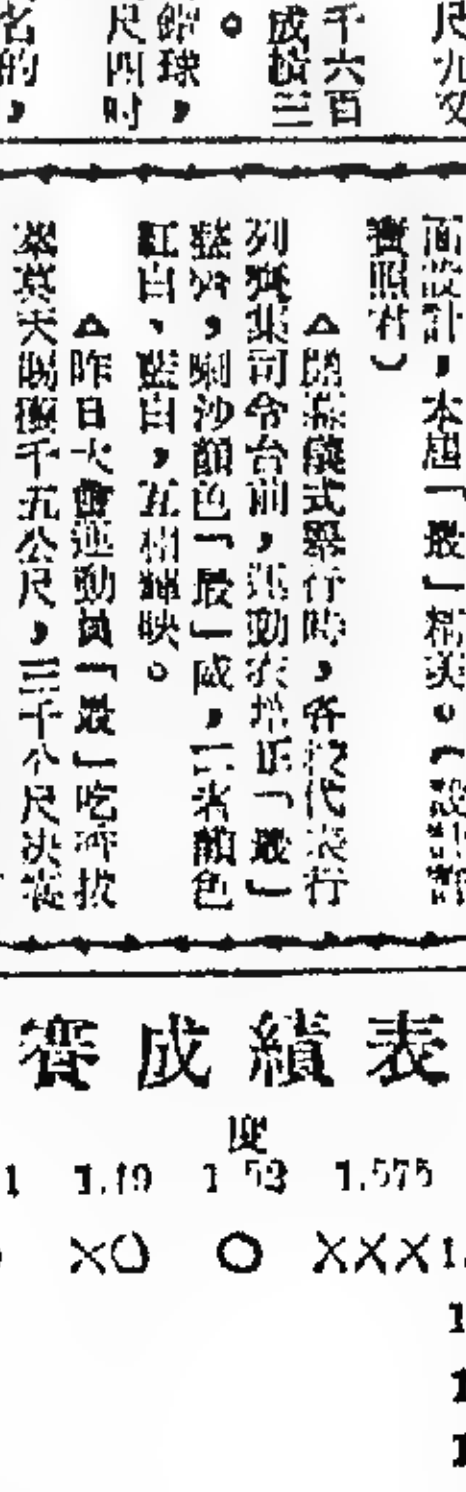 尺九
千六百
成績三
。
鉛球，
尺四吋
名的，
面設計，本屆「最」精美。（設計
照君）
△開幕儀式舉行時，各校代表行
列齊集司令台前，運動衣均正「最」
整齊，喇沙顏色「最」威，二者顏色
紅白、藍白，互相輝映。
△昨日大會運動員「最」吃
莫天賜獲千五公尺，三千公尺決賽
賽成績表
度
1 1.49 1.53 1.575
XO O XXX 1.
1
1
1